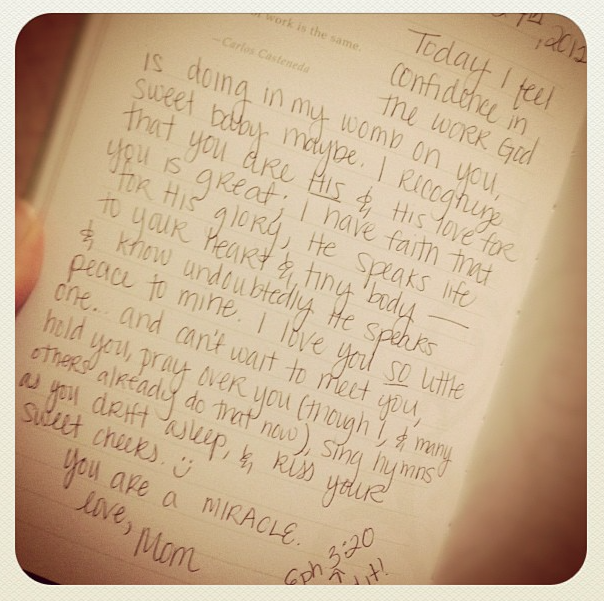 of work is the same.
—Carlos Casteneda
, 2012
Today I feel
confidence in
the work God
is doing in my womb on you,
sweet baby maybe. I recognize
that you are His & His love for
you is great; I have faith that
for His glory, He speaks life
to your heart & tiny body —
& know undoubtedly He speaks
peace to mine. I love you so little
one... and can't wait to meet you,
hold you, pray over you (though I, & many
others already do that now), sing hymns
as you drift asleep, & kiss your
sweet cheeks. :)
you are a MIRACLE.
love,
Mom
Eph 3:20
it!